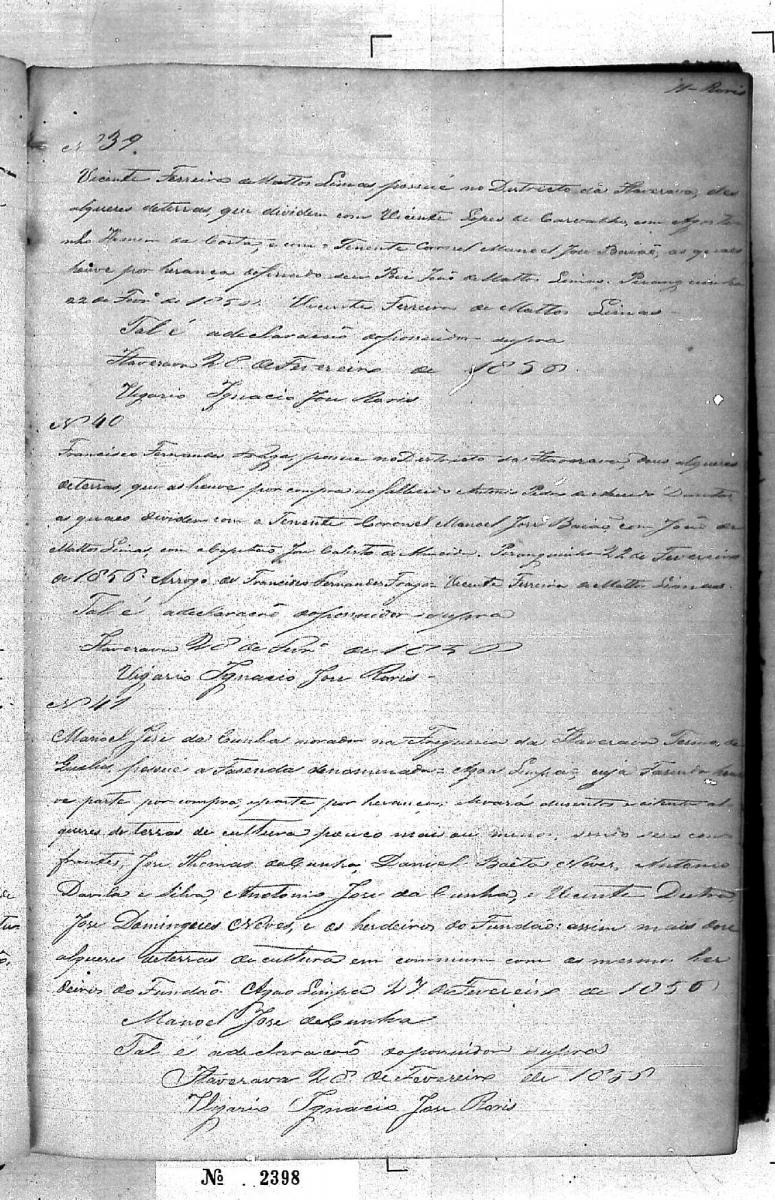 11- Roris
Nº 39.
Vicente Ferreira de Mattos Simas possue no Districto da Itaverava, dès
alqueres de terras, que dividem com Vicente Lopes de Carvalho, com Agosti
nho Homem da Costa, e com o Tenente Coronel Manoel Jose Baiaõ, as quaes
houve por herança de seu Pai João de Mattos Simas. Piranguinha
22 de Fevrº de 1856. Vicente Ferreira de Mattos Simas -
Tal é a declaracaõ do possuidor supra
Itaverava 28 de Fevereiro de 1856.
Vigario Ignacio Jose Roris
Nº 40
Francisco Fernandes Fraga, possue no Districto da Itaverava, dous alqueres
de terras, que as houve por compra ao fallecido Antonio Pedro
as quaes dividem com o Tenente Coronel Manoel José Baiaõ com Joaõ de
Mattos Simas, com o Capitaõ Jose Calisto de Piranguinha 22 de Fevereiro
de 1856. Arrogo de Francisco Fernandes Fraga Vicente Ferreira de Mattos Simas.
Tal é a declaracaõ do possuidor supra
Itaverava 28 de Fevrº de 1856
Vigario Ignacio Jose Roris -
Nº 41
Manoel Jose da Cunha morador na Freguesia da Itaverava Termo de
Queluz, possue a Fasenda denominada = Agoa Limpa =, cuja Fasenda hou
ve parte por compra, e parte por herança; levará dusentos e oitenta al-
queres de terras de cultura pouco mais ou menos, sendo seus con
frontes, Jose Thomas da Cunha, Daniel Baeta Neves, Antonio
Davila e Silva, Antonio Jose da Cunha, e Vicente Dutra,
Jose Domingues Neves, e os herdeiros do Fundaõ: assim mais dose
alqueres de terras de cultura em commum com os mesmos her
deiros do Fundaõ. Agoa Limpa 27 de Fevereiro de 1856
Manoel Jose da Cunha
Tal é a declaracaõ do possuidor supra
Itaverava 28 de Fevereiro de 1856
Vigario Ignacio Jose Roris
Nº 2398